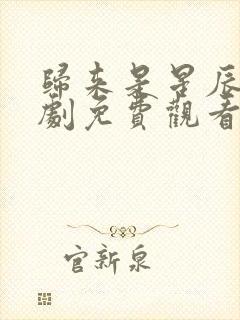 歸來是星辰
劇免費觀看
官新泉